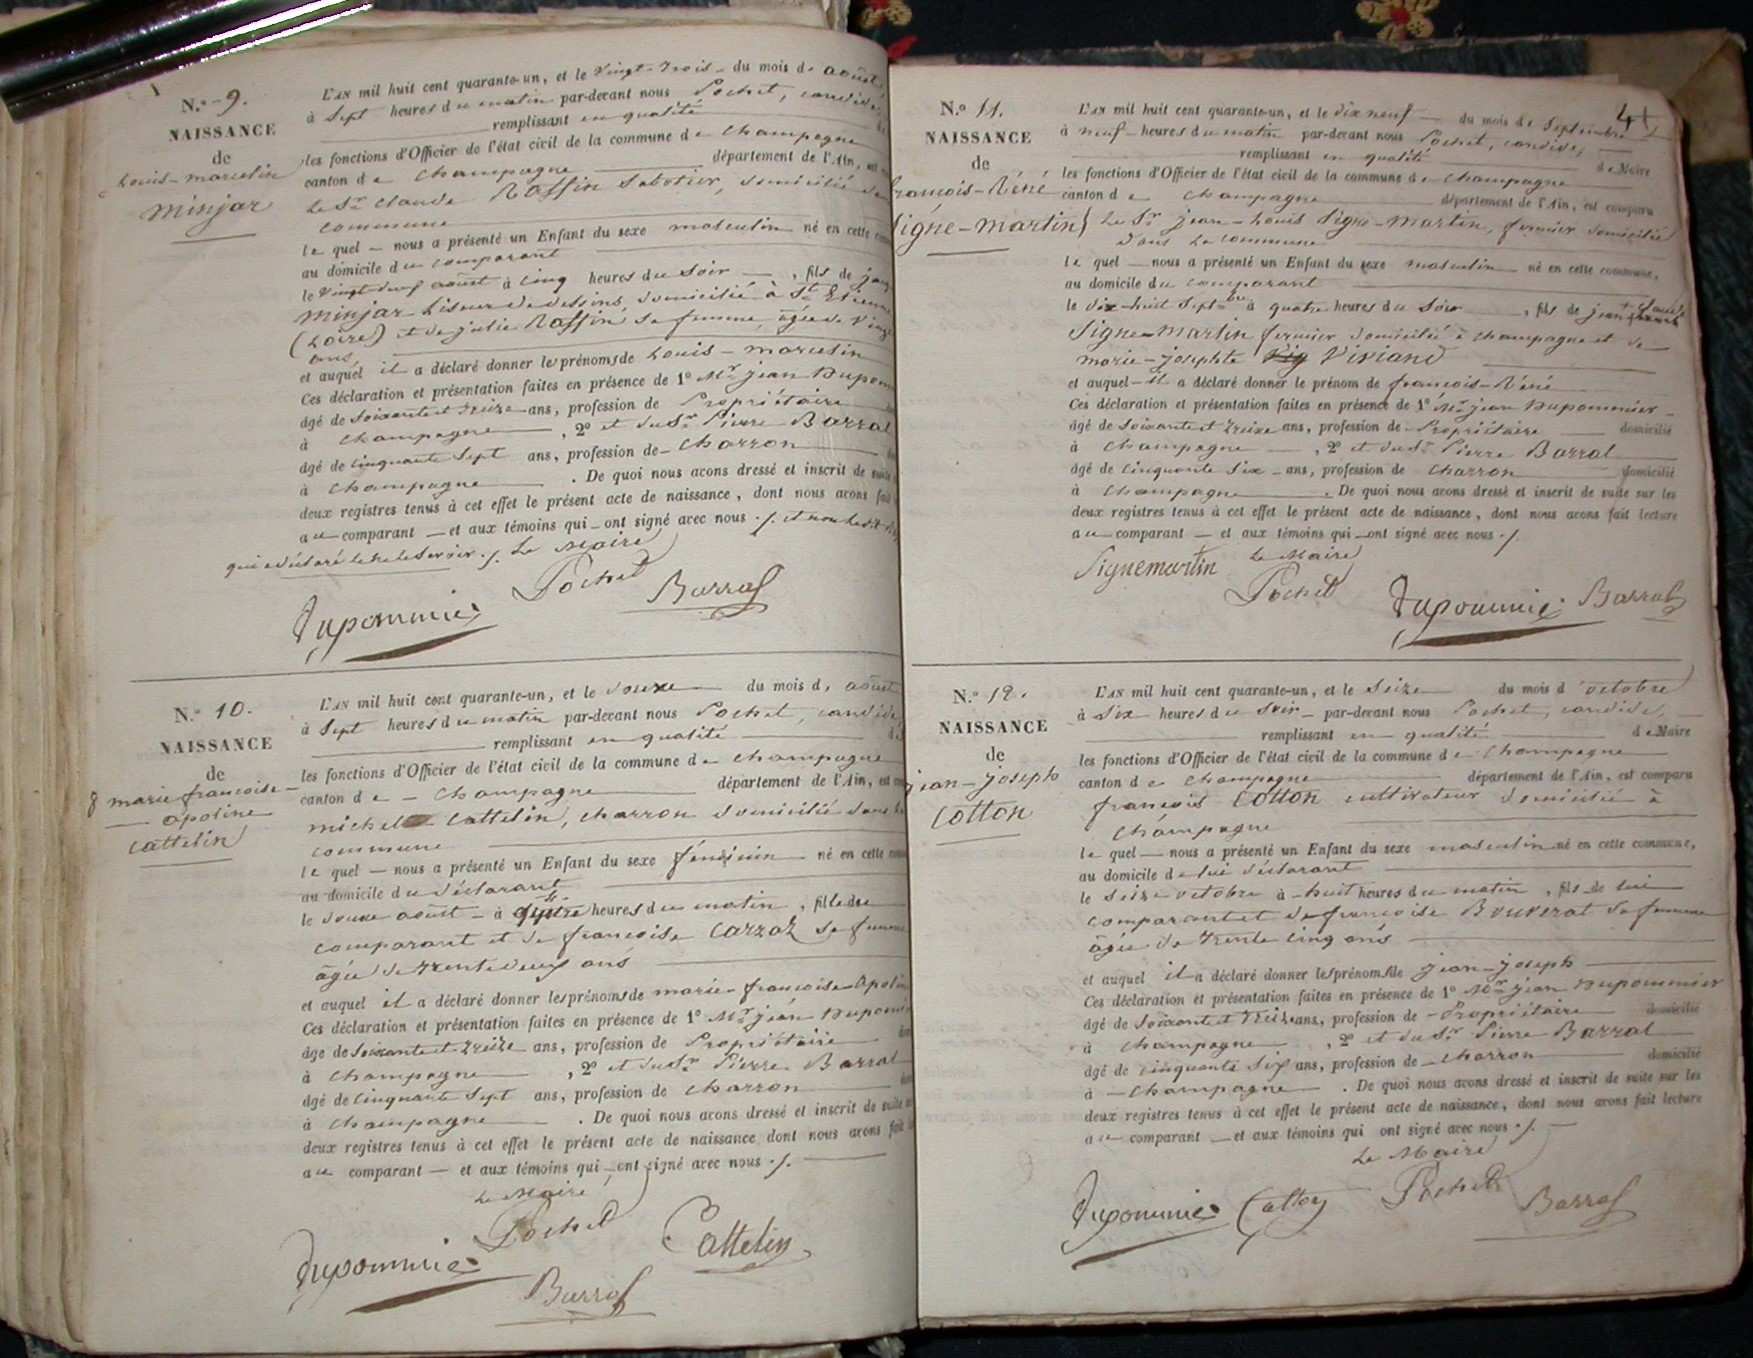 N.o 9.
NAISSANCE
de
Louis-marcelin
Minjar
L'AN mil huit cent quarante-un, et le vingt-trois du mois d. août
à Sept heures du matin par-devant nous Pochet, candide
remplissant en qualité
les fonctions d'Officier de l'état civil de la commune de Champagne
canton de Champagne département de l'Ain, est
Le Sr. Claude Raffin Sabotier, domicilié
commune
le quel — nous a présenté un Enfant du sexe masculin né en cette
au domicile du comparant
le vingt-deux août à cinq heures du Soir —, fils de
Minjar Liseur de dessins, domicilié à St. Etienne
(Loire) et de julie Raffin sa femme, âgée de
ans
et auquel il a déclaré donner les prénoms de Louis-marcelin
Ces déclaration et présentation faites en présence de 1o Mr. jean
âgé de Soixante et treize ans, profession de Propriétaire
à Champagne, 2o et du Sr. Pierre Barral
âgé de cinquante Sept ans, profession de Charron
à Champagne. De quoi nous avons dressé et inscrit de suite
deux registres tenus à cet effet le présent acte de naissance, dont nous avons fait
au comparant — et aux témoins qui ont signé avec nous ./. et non
qui a déclaré ne le savoir ./. Le Maire
Pochet
Barral
Dupommier
N.o 10.
NAISSANCE
de
marie françoise
apoline
Cattelin
L'AN mil huit cent quarante-un, et le douze du mois d. août
à Sept heures du matin par-devant nous Pochet, candide,
remplissant en qualité
les fonctions d'Officier de l'état civil de la commune de Champagne
canton de — Champagne département de l'Ain, est
michel Cattelin, charron domicilié dans
commune
le quel — nous a présenté un Enfant du sexe féminin né en cette
au domicile du déclarant
le douze août — à heures du matin, fille du
comparant et de françoise Carraz sa femme
âgée de trente deux ans
et auquel il a déclaré donner les prénoms de marie-françoise-
Ces déclaration et présentation faites en présence de 1o Mr. jean
âgé de Soixante et treize ans, profession de Propriétaire
à Champagne, 2o et du Sr. Pierre Barral
âgé de cinquante Sept ans, profession de Charron
à Champagne. De quoi nous avons dressé et inscrit de suite
deux registres tenus à cet effet le présent acte de naissance dont nous avons fait
au comparant — et aux témoins qui ont signé avec nous ./.
Le Maire
Pochet
Cattelin
Dupommier
Barral
41
N.o 11.
NAISSANCE
de
françois-Réné
Signe-martin
L'AN mil huit cent quarante-un, et le dix neuf du mois de Septembre
à neuf heures du matin par-devant nous Pochet, candide,
remplissant en qualité de Maire
les fonctions d'Officier de l'état civil de la commune de Champagne
canton de Champagne département de l'Ain, est comparu
Le Sr. jean-Louis Signe-martin, fermier domicilié
dans la commune
le quel — nous a présenté un Enfant du sexe masculin né en cette commune,
au domicile du comparant
le dix-huit Septbre à quatre heures du Soir, fils de jean
Signe-martin fermier domicilié à Champagne et de
marie-josephte Viviand
et auquel — il a déclaré donner le prénom de françois-Réné
Ces déclaration et présentation faites en présence de 1o Mr. jean Dupommier
âgé de Soixante et treize ans, profession de Propriétaire domicilié
à Champagne, 2o et du Sr. Pierre Barral
âgé de cinquante Six ans, profession de Charron domicilié
à Champagne. De quoi nous avons dressé et inscrit de suite sur les
deux registres tenus à cet effet le présent acte de naissance, dont nous avons fait lecture
au comparant — et aux témoins qui ont signé avec nous ./.
Signemartin Le Maire
Pochet
Dupommier Barral
N.o 12.
NAISSANCE
de
jean-joseph
Cotton
L'AN mil huit cent quarante-un, et le Seize du mois d'octobre
à Six heures du Soir par-devant nous Pochet, candide,
remplissant en qualité de Maire
les fonctions d'Officier de l'état civil de la commune de Champagne
canton de Champagne département de l'Ain, est comparu
françois Cotton cultivateur domicilié à
Champagne
le quel — nous a présenté un Enfant du sexe masculin né en cette commune,
au domicile de lui déclarant
le Seize octobre à huit heures du matin, fils de lui
comparant et de françoise Bouverat sa femme
âgée de trente cinq ans
et auquel il a déclaré donner les prénoms de jean-joseph
Ces déclaration et présentation faites en présence de 1o Mr. jean Dupommier
âgé de Soixante et treize ans, profession de Propriétaire domicilié
à Champagne, 2o et du Sr. Pierre Barral
âgé de cinquante Six ans, profession de Charron domicilié
à — Champagne. De quoi nous avons dressé et inscrit de suite sur les
deux registres tenus à cet effet le présent acte de naissance, dont nous avons fait lecture
au comparant — et aux témoins qui ont signé avec nous ./.
Le Maire
Dupommier Cotton Pochet Barral